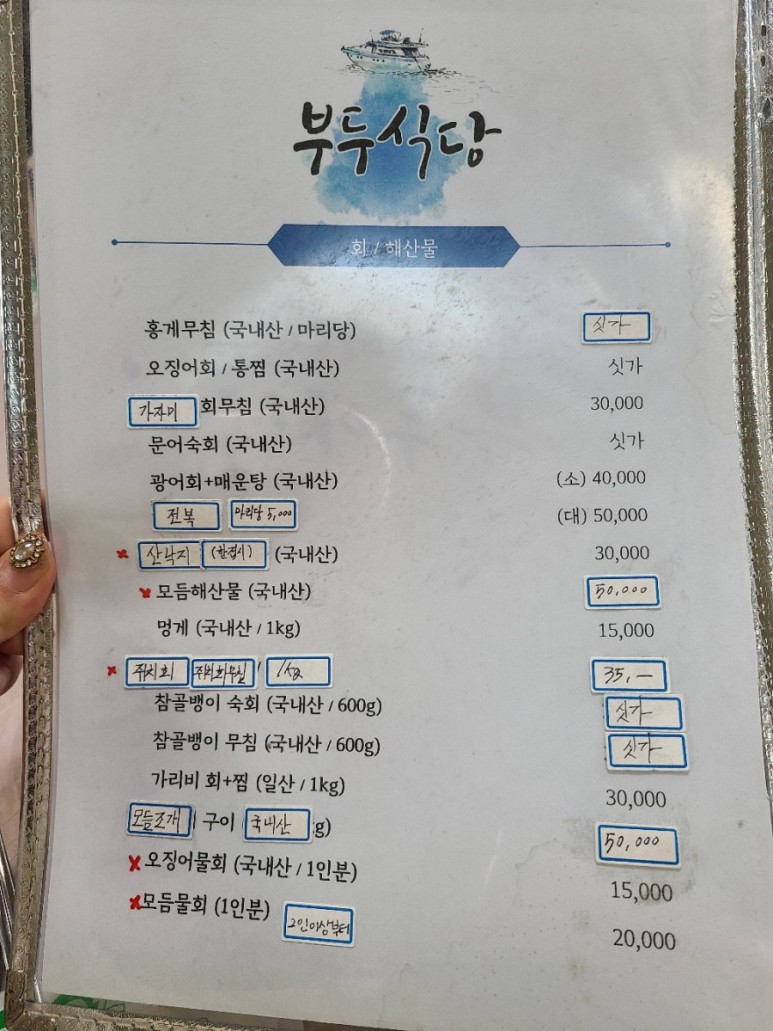 부두식당
회 / 해산물
홍게무침 (국내산 / 마리당) 싯가
오징어회 / 통찜 (국내산) 싯가
가자미 회무침 (국내산) 30,000
문어숙회 (국내산) 싯가
광어회+매운탕 (국내산) (소) 40,000
전복 마리당 5,000 (대) 50,000
산낙지 (한접시) (국내산) 30,000
모듬해산물 (국내산) 50,000
멍게 (국내산 / 1kg) 15,000
쥐치회 쥐치회무침 / 35,—
참골뱅이 숙회 (국내산 / 600g) 싯가
참골뱅이 무침 (국내산 / 600g) 싯가
가리비 회+찜 (일산 / 1kg) 30,000
모듬조개 구이 국내산 g) 50,000
오징어물회 (국내산 / 1인분) 15,000
모듬물회 (1인분) 2인이상부터 20,000